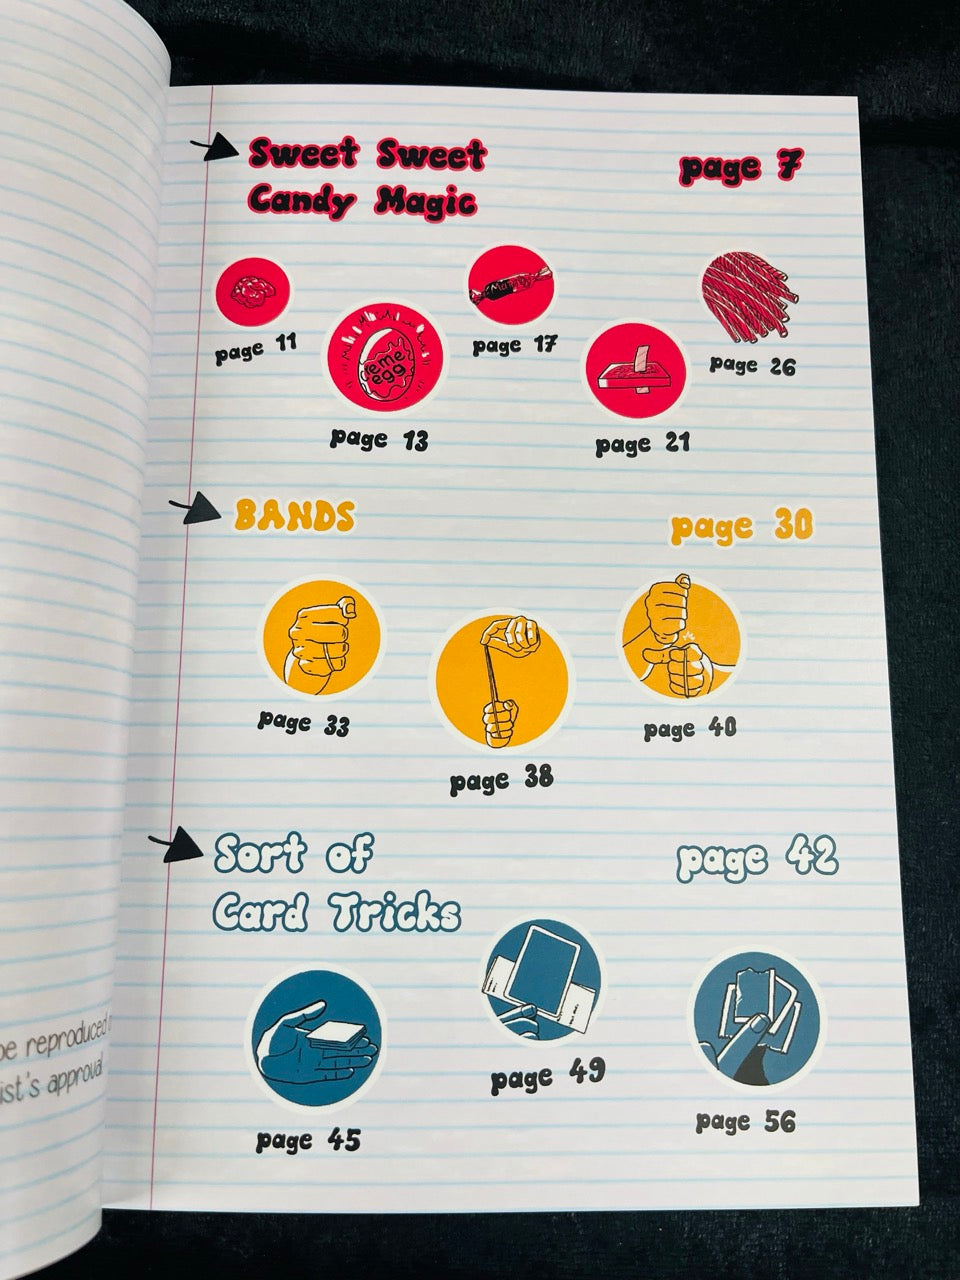 Sweet Sweet
Candy Magic
page 7
page 11
eme
egg
page 13
page 17
page 21
page 26
BANDS
page 30
page 33
page 38
page 40
Sort of
Card Tricks
page 42
page 45
page 49
page 56
be reproduced
ist's approval